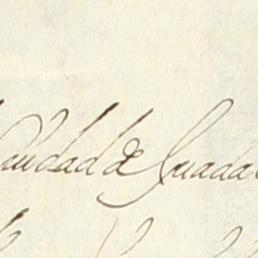 Caudad de Guada